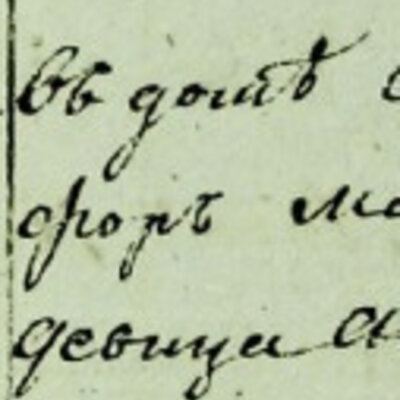 въ домѣ
форъ
девица